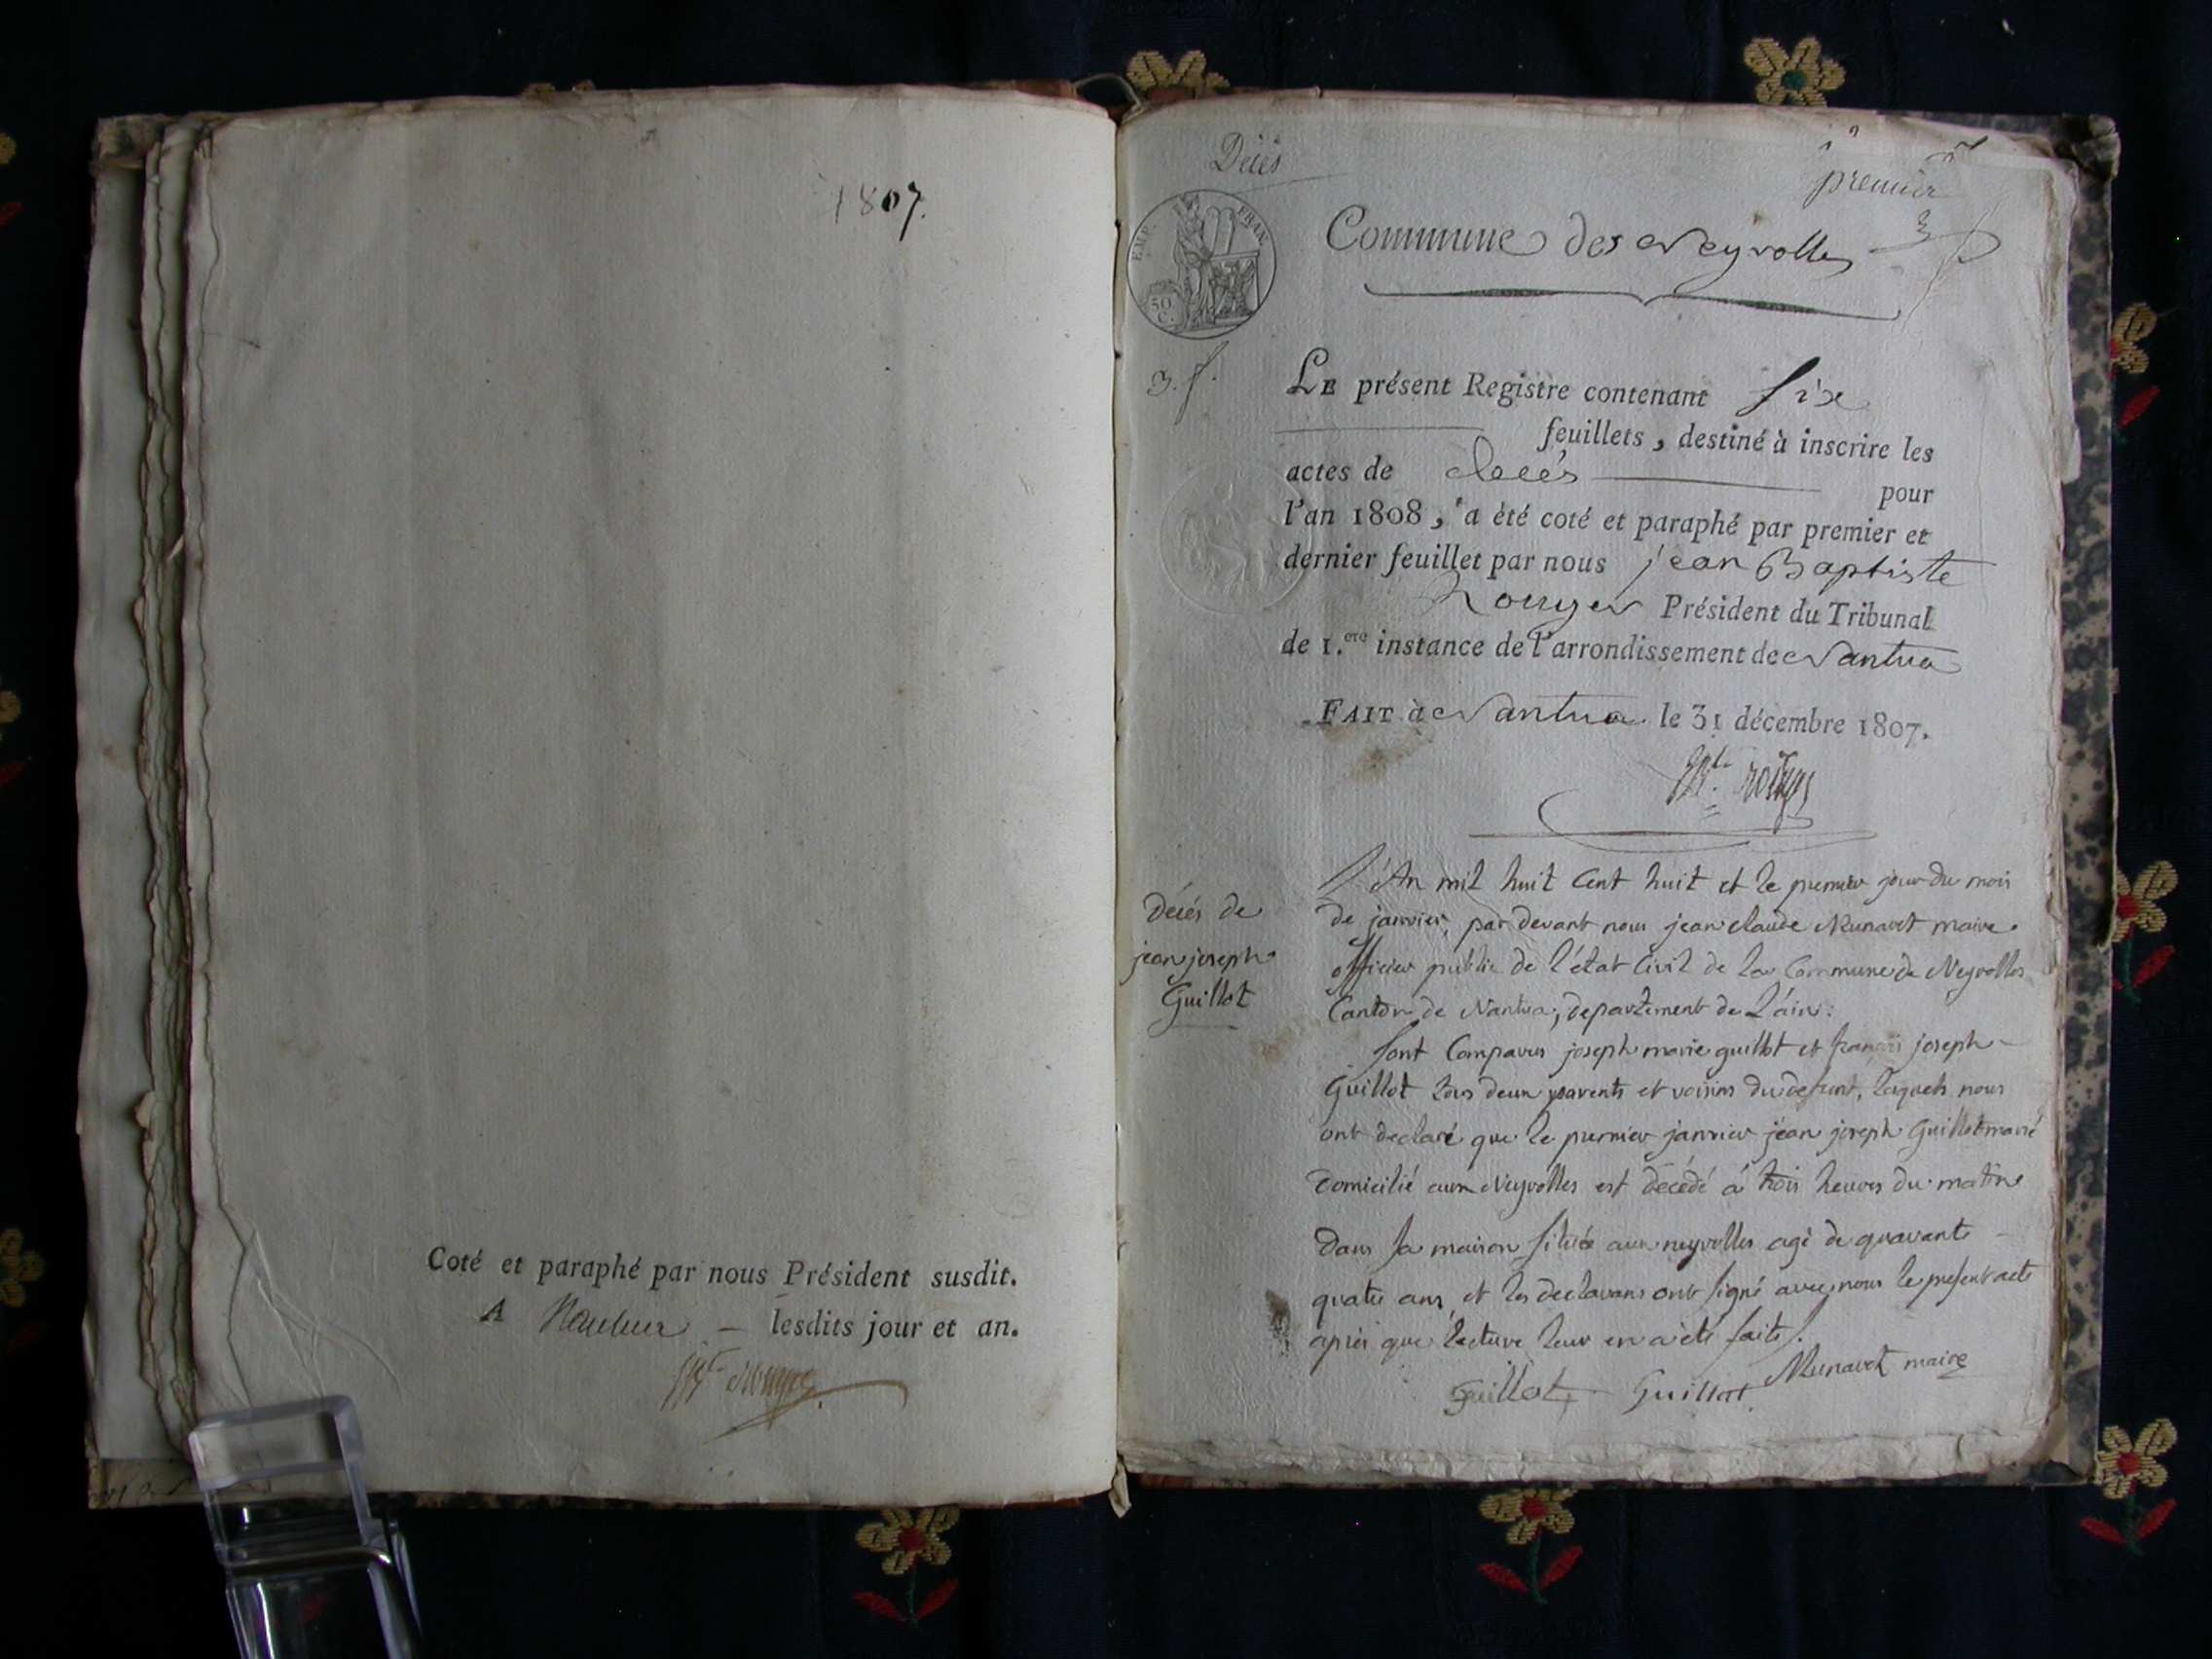 1807.
Coté et paraphé par nous Président susdit.
A Nantua — lesdits jour et an.
Décès
premier
Commune des Neyrolles
EMP. FRAN.
50 C.
3. f.
LE présent Registre contenant six
feuillets, destiné à inscrire les
actes de décés pour
l'an 1808, a été coté et paraphé par premier et
dernier feuillet par nous jean Baptiste
Rouyer Président du Tribunal
de 1.ere instance de l'arrondissement de Nantua
FAIT à Nantua le 31 décembre 1807.
Décés de
jean joseph
Guillot
L'An mil huit Cent huit et le premier jour du mois
de janvier, par devant nous jean claude Munavet maire
officier public de l'état Civil de la Commune de Neyrolles
Canton de Nantua, departement de l'áin:
sont Comparus joseph marie guillot et françois joseph
Guillot tous deux parents et voisins du defunt, lesquels nous
ont declaré que le premier janvier jean joseph Guillot marié
domicilié aux Neyrolles est décédé á trois heures du matin
dans sa maison située aux neyrolles agé de quarante
quatre ans, et les declarans ont signé avec nous le present acte
après que lecture leur en a été faite.
Guillot Guillot Munavet maire